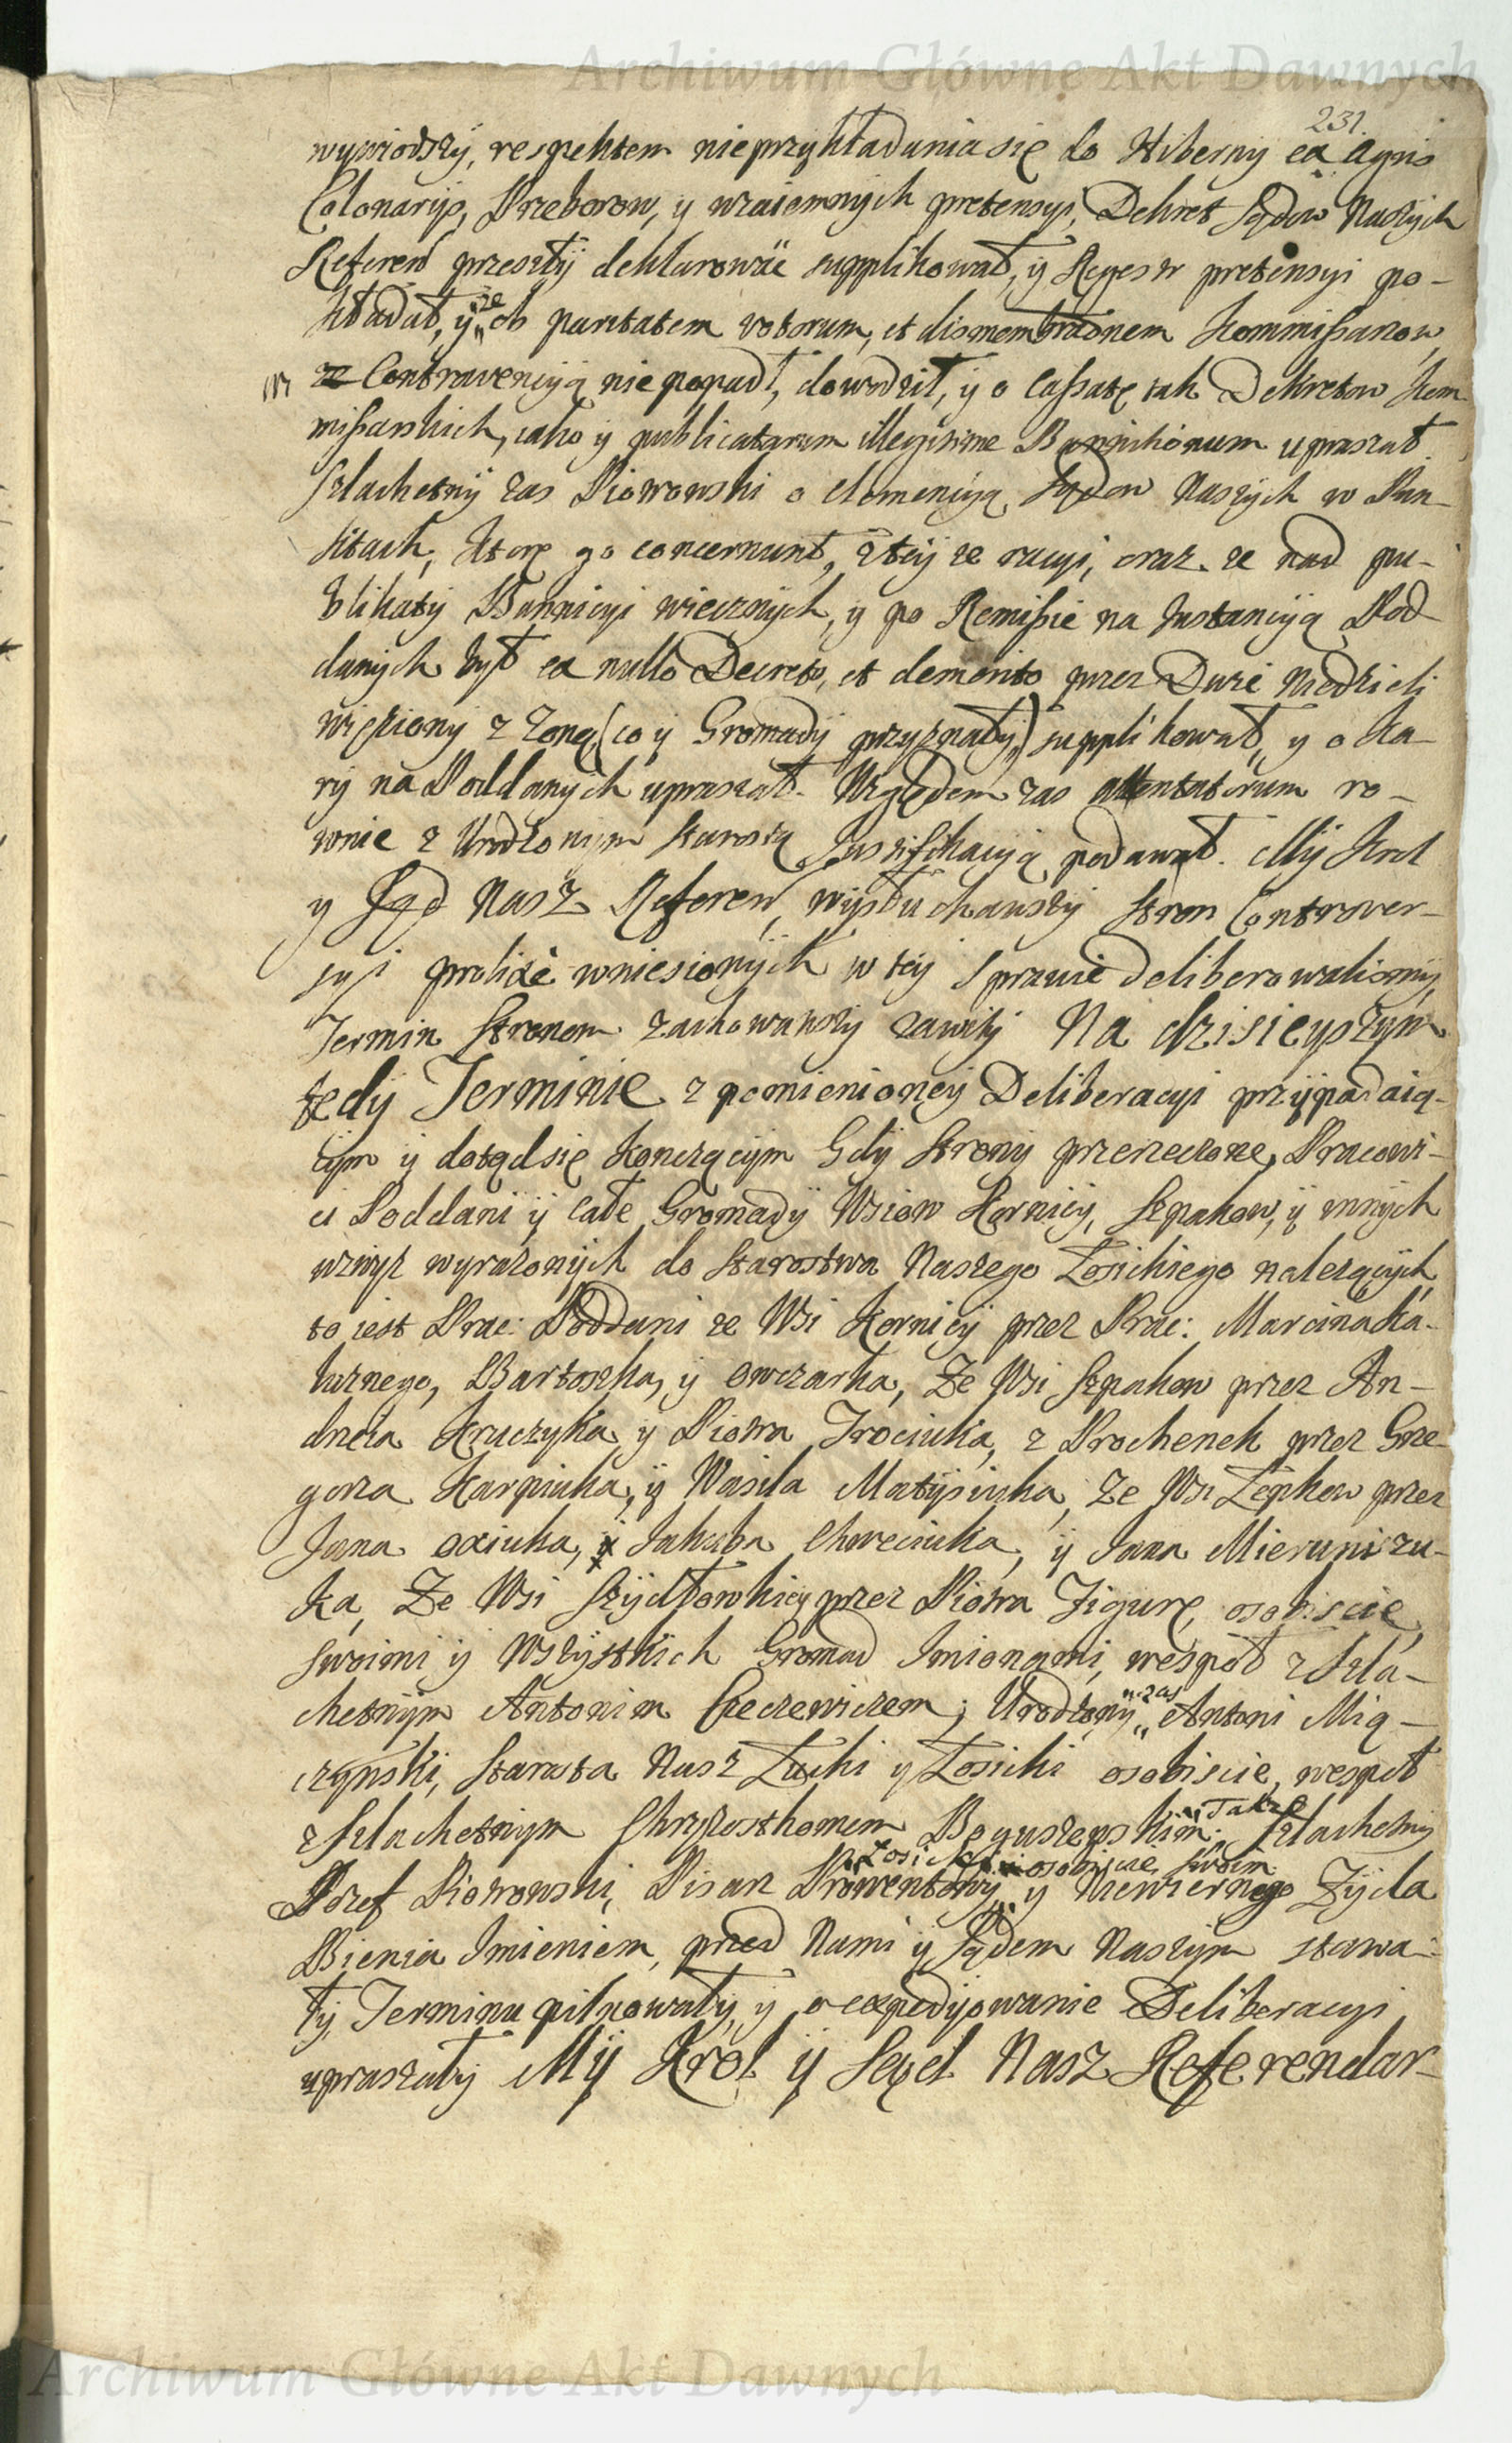 Archiwum Główne Akt Dawnych
231.
wywiodszy, respektem nieprzykładania się do Hiberny ex Agris
Colonariis, Przeborow, y wzaiemnych pretensyi, Dekret Sądow Naszych
Referen przeszły deklarować supplikował, y Regestr pretensyi po-
kładał, y "że" ob paritatem votorum, et dismembrationem Kommissarzow,
w Contravencyą nie popadł, dowodził, y o Cassatę tak Dekretow Kom
missarskich, iako y publicatarum illegitime Bannitionum upraszał.
Szlachetny zas Piotrowski o clemencyą Sądow Naszych w Pun-
ktach, ktore go concernunt, z tey że racyi, oraz że nad pu-
blikaty Bannicyi wiecznych, y po Remissie na Instancyą Pod
danych był ex nullo Decreto, et demerito przez Dwie Niedzieli
więziony z Zoną (co y Gromady przyznały) supplikował, y o Ka-
ry na Poddanych upraszał. Względem zas attentatorum ro-
wnie z Urodzonym Starostą Justifikacyą podawał. My Krol
y Sąd Nasz Referen, wysłuchawszy Stron Controver-
syi prolixe wniesionych w tey Sprawie deliberowalismy,
Termin Stronom zachowawszy zawity Na dzisieyszym
tedy Terminie z pomienioney Deliberacyi przypadaią-
cym y dotąd się konczącym Gdy Strony przerzeczone, Pracowi-
ci Poddani y całe Gromady Wsiow Kornicy, Szpakow, y innych
wzwyz wyrazonych do Starostwa Naszego Łosickiego nalezących
to iest Prac: Poddani ze Wsi Kornicy przez Prac: Marcina Ka-
łuznego, Bartoszka, y Owczarka, Ze Wsi Szpakow przez An-
drzeia Kruczyka y Piotra Trociuka, z Prochenek przez Grze-
gorza Karpiuka, y Wasila Matysiuka, Ze Wsi Łepkow przez
Jana Oxiuka, Jakuba Chweciuka, y Jana Mieruniczu-
ka, Ze Wsi Szydłowkicy przez Piotra Figurę osobiscie,
swoimi y Wszystkich Gromad Imionami, wespoł z Szla-
chetnym Antonim Czeczewiczem; Urodzony "zas" Antoni Mią-
czynski, Starosta Nasz Łucki y Łosicki osobiscie, wespoł
z Szlachetnym Chryzosthomem Boguszewskim; Takze Szlachetny
Jozef Piotrowski, Pisarz Prowentowy Łosicki osobiscie swoim y Niewiernego Zyda
Bienia Imieniem, przed Nami y Sądem Naszym stawa-
ły, Terminu pilnowały, y o expedyowanie Deliberacyi
upraszały My Krol y Sąd Nasz Referendar-
Archiwum Główne Akt Dawnych